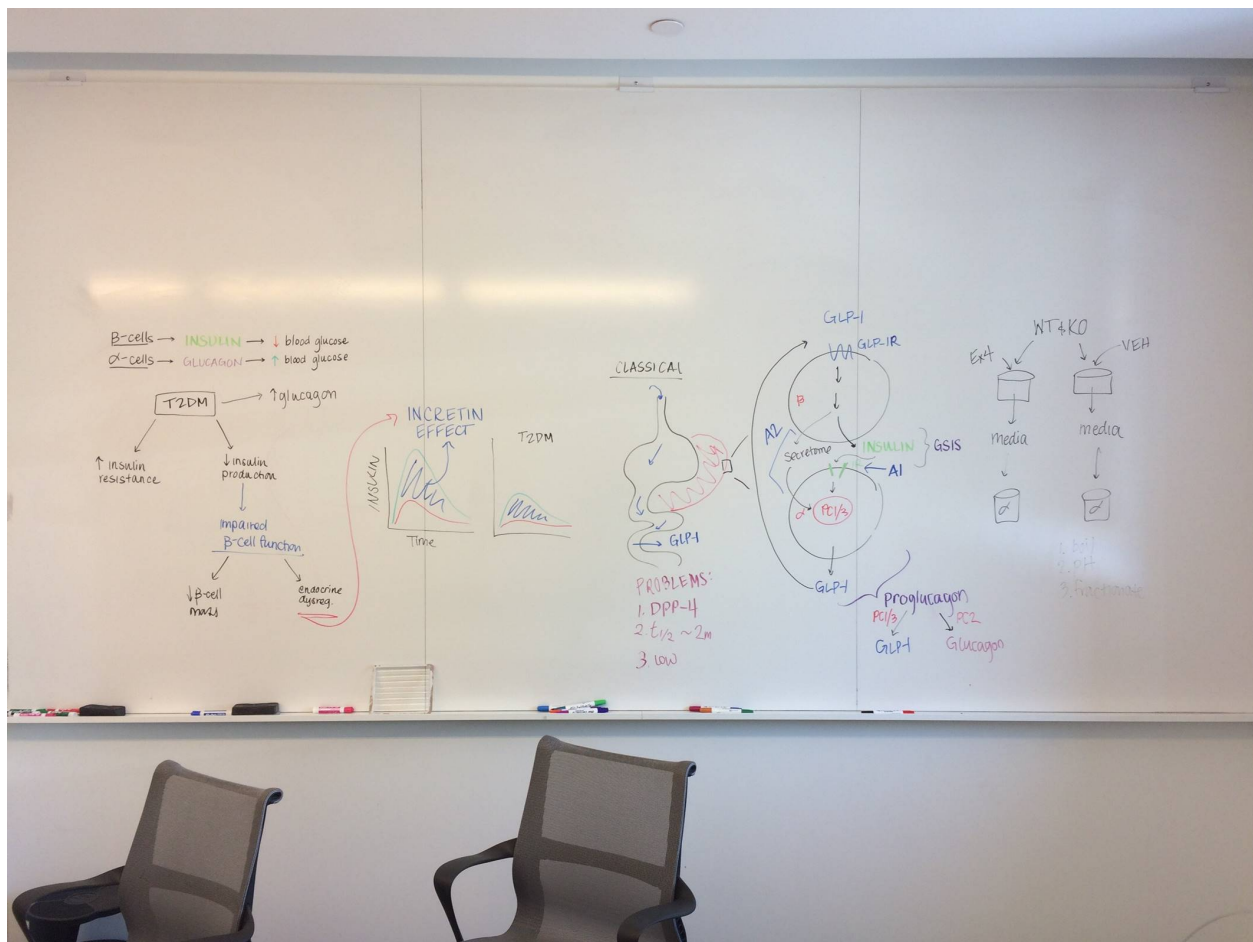 β-cells → INSULIN → ↓ blood glucose
α-cells → GLUCAGON → ↑ blood glucose
T2DM → ↑glucagon
↑ insulin
resistance
↓ insulin
production
impaired
β-cell function
↓β-cell
mass
endocrine
dysreg.
INCRETIN
EFFECT
INSULIN
Time
T2DM
CLASSICAL
GLP-1
PROBLEMS:
1. DPP-4
2. t1/2 ~ 2m
3. low
GLP-1
GLP-1R
β
A2
secretome
INSULIN
GSIS
A1
α
PC1/3
GLP-1
proglucagon
PC1/3
PC2
GLP-1
Glucagon
WT & KO
Ex4
VEH
media
media
α
α
1. boil
3. fractionate